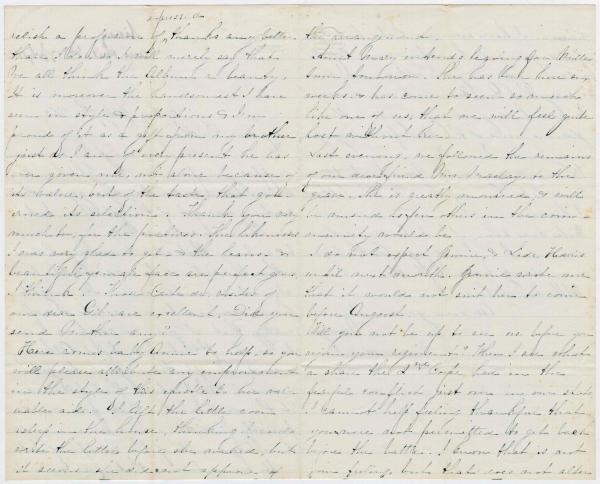 expression
relish a profusion of thanks any better
than I do so I will merely say that
We all think the Album a beauty.
It is moreover the handsomest I have
seen in style & proportions & I am
proud of it as a gift from my brother
just as I am of every present he has
ever given me, not alone because of
its value, but of the taste that gov-
erned its selection. Thank you very
much too, for the pictures. The likenesses
I was very glad to get & the
beautiful face are perfect gems,
I think. Those Carte de visites of
our dear Gib. are excellent. Did you
send Brother any?
Here comes baby Annie to help, so you
will please attribute any improvement
in the style of this epistle to her val-
uable aid. I left the little one
asleep in the house, thinking I could
write the letter before she waked, but
it seems she did not approve of
the arrangement.
Aunt Mary intends leaving for Miller
tomorrow. She has been here six
weeks & has come to seem so much
like one of us, that we will feel quite
lost without her.
Last evening, we followed the remains
of our dear friend Mrs. to the
grave. She is greatly mourned, & will
be missed as few others in the com-
munity would be.
I do not expect Jennie & Lade Harris
until next month. Jennie wrote me
that it would not suit her to come
before August.
Will you not be up to see us before you
rejoin your regiment? Then I see what
a share the 2nd had in the
fearful conflict just over on our side
I cannot help feeling thankful that
you were not permitted to get back
before the battle. I know that is not
your feeling, but that does not alter